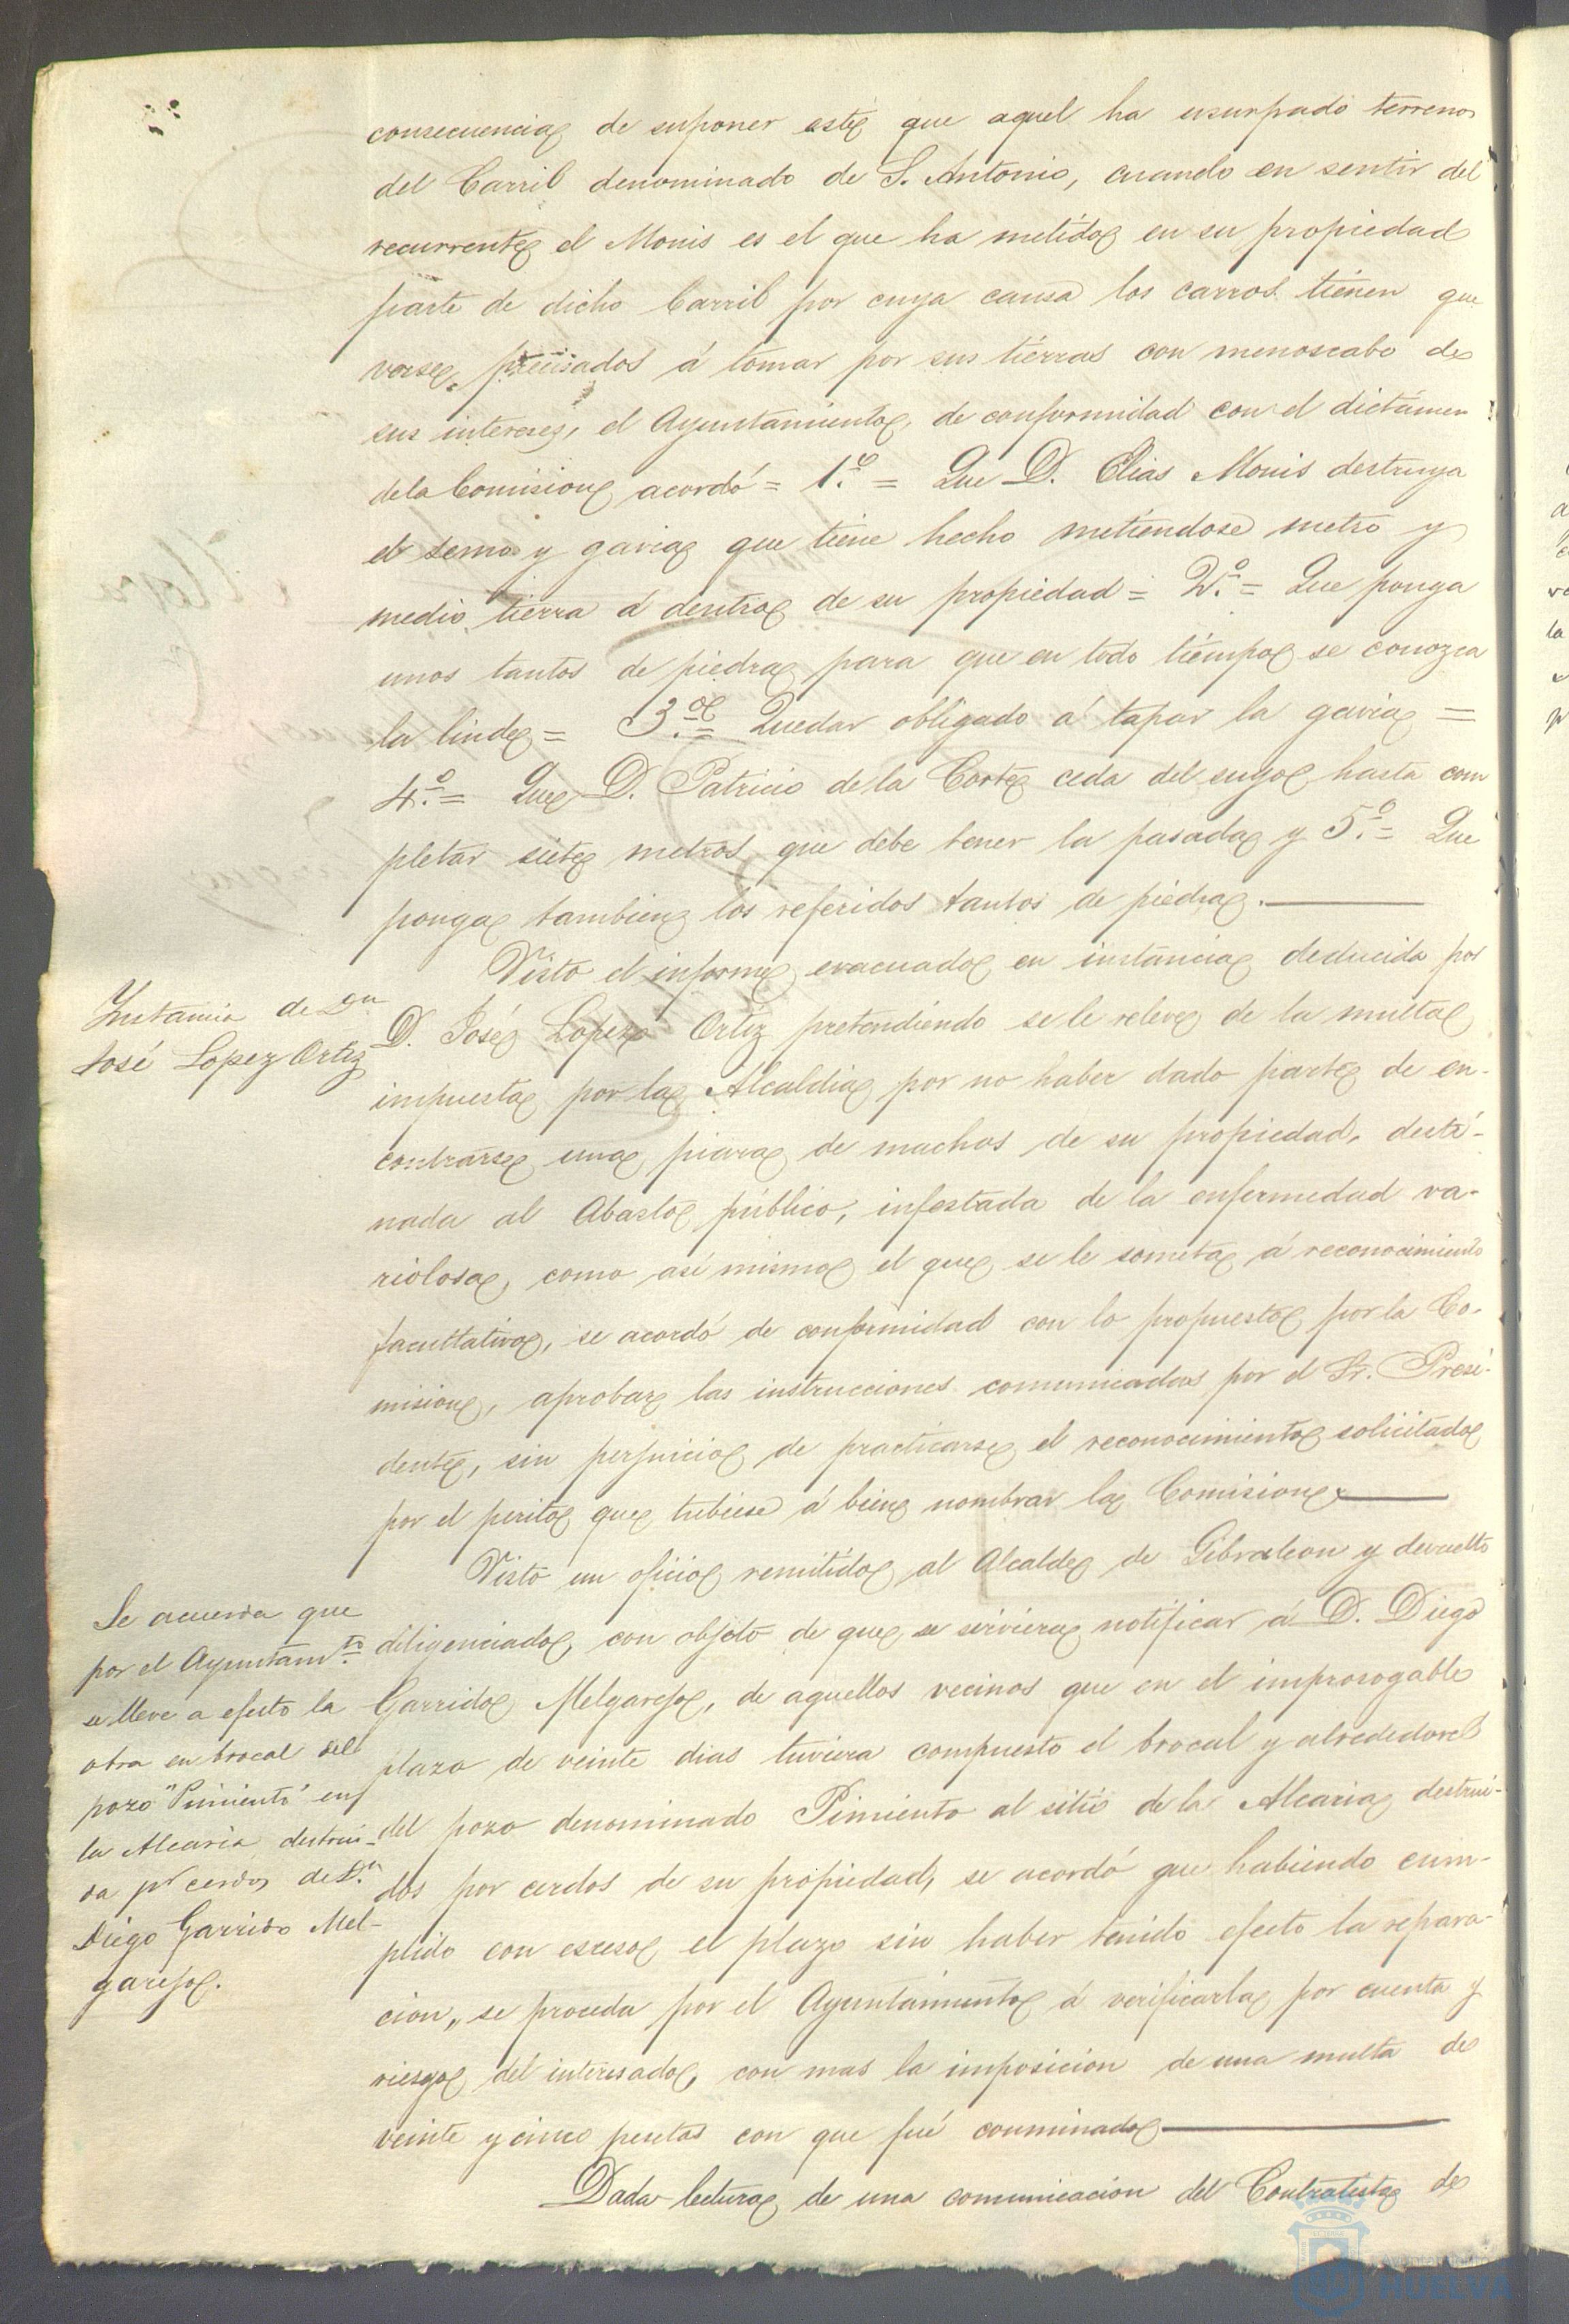 consecuencia de suponer este que aquel ha usurpado terrenos
del Carril denominado de S. Antonio, cuando en sentir del
recurrente el Monis es el que ha metido en su propiedad
parte de dicho Carril por cuya causa los carros tienen que
verse precisados á tomar por sus tierras con menoscabo de
sus intereses, el Ayuntamiento, de conformidad con el dictámen
de la Comision acordó = 1.º = Que D. Elias Monis destruya
el semo y gavia que tiene hecho metiendose metro y
medio tierra á dentro de su propiedad = 2.º = Que ponga
unos tantos de piedra para que en todo tiempo se conozca
la linde = 3.º = Quedar obligado á tapar la gavia =
4.º = Que D. Patricio de la Corte ceda del suyo hasta com
pletar siete metros que debe tener la pasada y 5.º = Que
ponga tambien los referidos tantos de piedra.
Instancia de Dn
José Lopez Ortiz
Visto el informe evacuado en instancia deducida por
D. José Lopez Ortiz pretendiendo se le releve de la multa
impuesta por la Alcaldia por no haber dado parte de en-
contrarse una piara de machos de su propiedad, desti-
nada al Abasto público, infestada de la enfermedad va-
riolosa, como así mismo el que se le someta á reconocimiento
facultativo, se acordó de conformidad con lo propuesto por la Co-
mision, aprobar las instrucciones comunicadas por el Sr. Presi-
dente, sin perjuicio de practicarse el reconocimiento solicitado
por el perito que tubiese á bien nombrar la Comision.
Se acuerda que
por el Ayuntamto
se lleve a efecto la
obra en brocal del
pozo "Pimiento" en
la Alcaria destrui-
da pr cerdos de Dn
Diego Garrido Mel-
garejo.
Visto un oficio remitido al Alcalde de Gibraleon y devuelto
diligenciado, con objeto de que se serviera notificar á D. Diego
Garrido Melgarejo, de aquellos vecinos que en el improrogable
plazo de veinte dias tuviera compuesto el brocal y alrededores
del pozo denominado Pimiento al sitio de la Alcaria destrui-
dos por cerdos de su propiedad, se acordó que habiendo cum-
plido con esceso el plazo sin haber tenido efecto la repara-
cion, se proceda por el Ayuntamiento á verificarla por cuenta y
riesgo del interesado, con mas la imposicion de una multa de
veinte y cinco pesetas con que fué conminado
Dada lectura de una comunicacion del Contratista de
Ayuntamiento
HUELVA